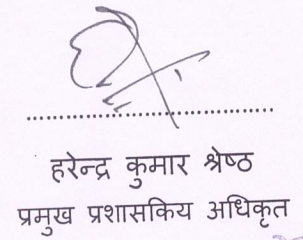 हरेन्द्र कुमार श्रेष्ठ
प्रमुख प्रशासकिय अधिकृत